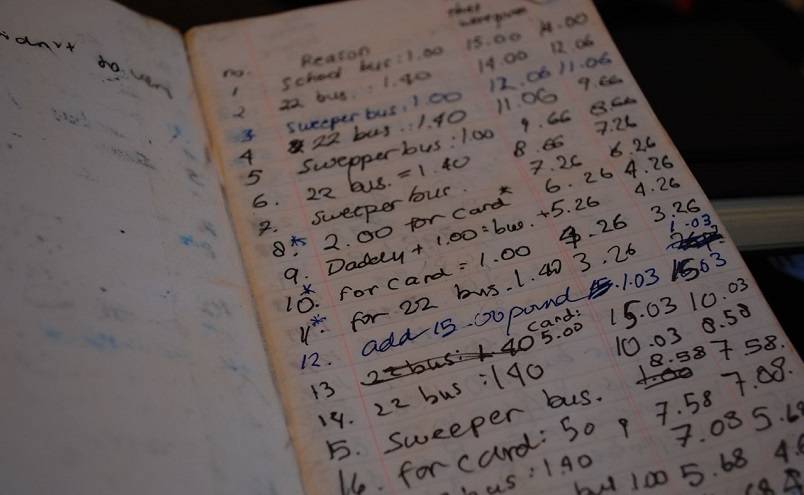 no. Reason
1 School bus: 1.00 15.00 14.00
2 22 bus : 1.40 14.00 12.06
3 sweeper bus: 1.00 12.06 11.06
4 22 bus : 1.40 11.06 9.66
5 Swepper bus: 1.00 9.66 8.66
6. 22 bus = 1.40 8.66 7.26
7. sweeper bus. 7.26 6.26
8.* 2.00 for card* 6.26 4.26
9. Daddy + 1.00 = bus. +5.26 4.26
10.* for card = 1.00 4.26 3.26
11* for 22 bus. 1.40 3.26 1.03
12. add 15.00 pound 1.03 15.03
13 22 bus: 1.40 card: 5.00 15.03 10.03
14. 22 bus : 140 10.03 8.58
15. Sweeper bus. 8.58 7.58.
16. for card: 50 p 7.58 7.08.
bus: 140 7.08 5.68
100 5.68